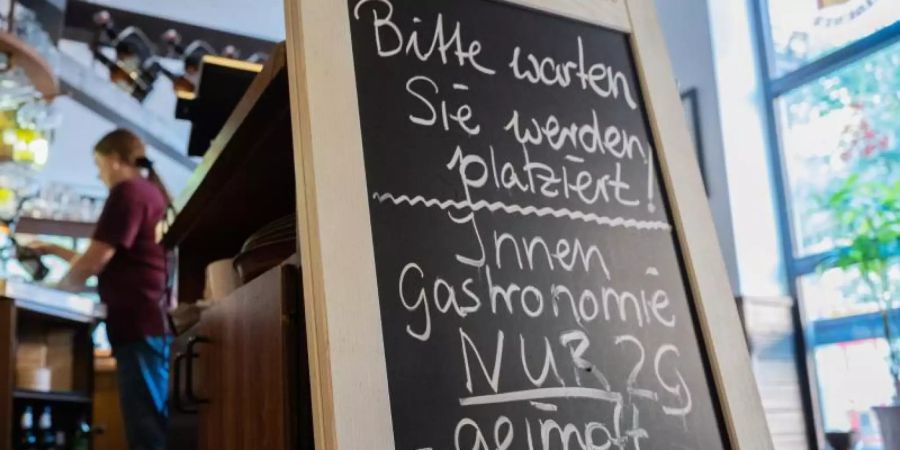 Bitte warten
Sie werden
platziert!
Innen
Gastronomie
NUR 2G
- geimpft